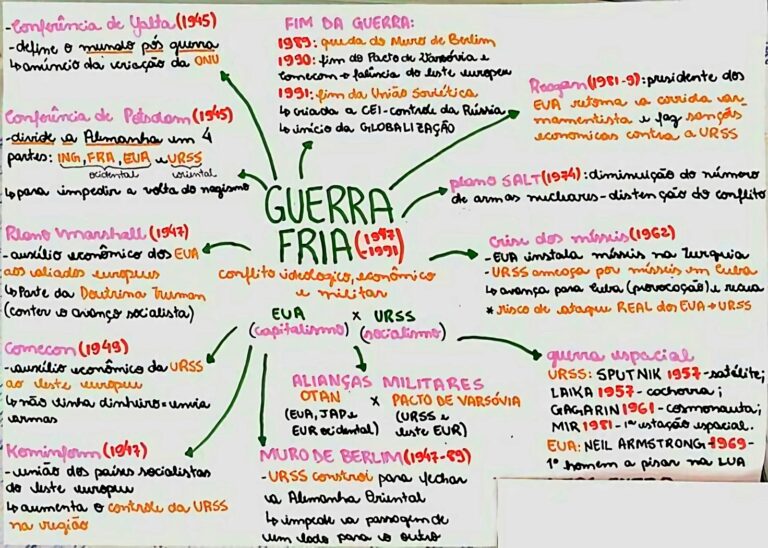 -Conferência de Yalta (1945)
-define o mundo pós guerra
↳anúncio da criação da ONU
Conferência de Potsdam (1945)
-divide a Alemanha em 4
partes: ING, FRA, EUA e URSS
ocidental oriental
↳para impedir a volta do nazismo
Plano Marshall (1947)
-auxílio econômico dos EUA
aos aliados europeus
↳Parte da Doutrina Truman
(conter o avanço socialista)
Comecon (1949)
-auxílio econômico da URSS
ao leste europeu
↳não tinha dinheiro=envia
armas
Kominform (1947)
-união dos países socialistas
do leste europeu
↳aumenta o controle da URSS
na região
FIM DA GUERRA:
1989: queda do Muro de Berlim
1990: fim do Pacto de Varsóvia e
Comecon→falência do leste europeu
1991: fim da União Soviética
↳criada a CEI-controle da Rússia
↳início da GLOBALIZAÇÃO
GUERRA
FRIA (1947
-1991)
conflito ideológico, econômico
e militar
EUA x URSS
(capitalismo) (socialismo)
ALIANÇAS MILITARES
OTAN x PACTO DE VARSÓVIA
(EUA, JAP e (URSS e
EUR ocidental) leste EUR)
MURO DE BERLIM (1947-89)
-URSS constroi para fechar
a Alemanha Oriental
↳impede a passagem de
um lado para o outro
Reagan (1981-9): presidente dos
EUA retoma a corrida ar-
mamentista e faz sanções
economicas contra a URSS
plano SALT (1974): diminuição do número
de armas nucleares-distenção do conflito
Crise dos mísseis (1962)
-EUA instala mísseis na Turquia
-URSS ameaça por mísseis em Cuba
↳avança para Cuba (provocação) e recua
* risco de ataque REAL dos EUA→URSS
guerra espacial
URSS: SPUTNIK 1957-satélite;
LAIKA 1957-cachorra;
GAGARIN 1961-cosmonauta;
MIR 1981-1ª estação espacial.
EUA: NEIL ARMSTRONG-1969-
1º homem a pisar na LUA